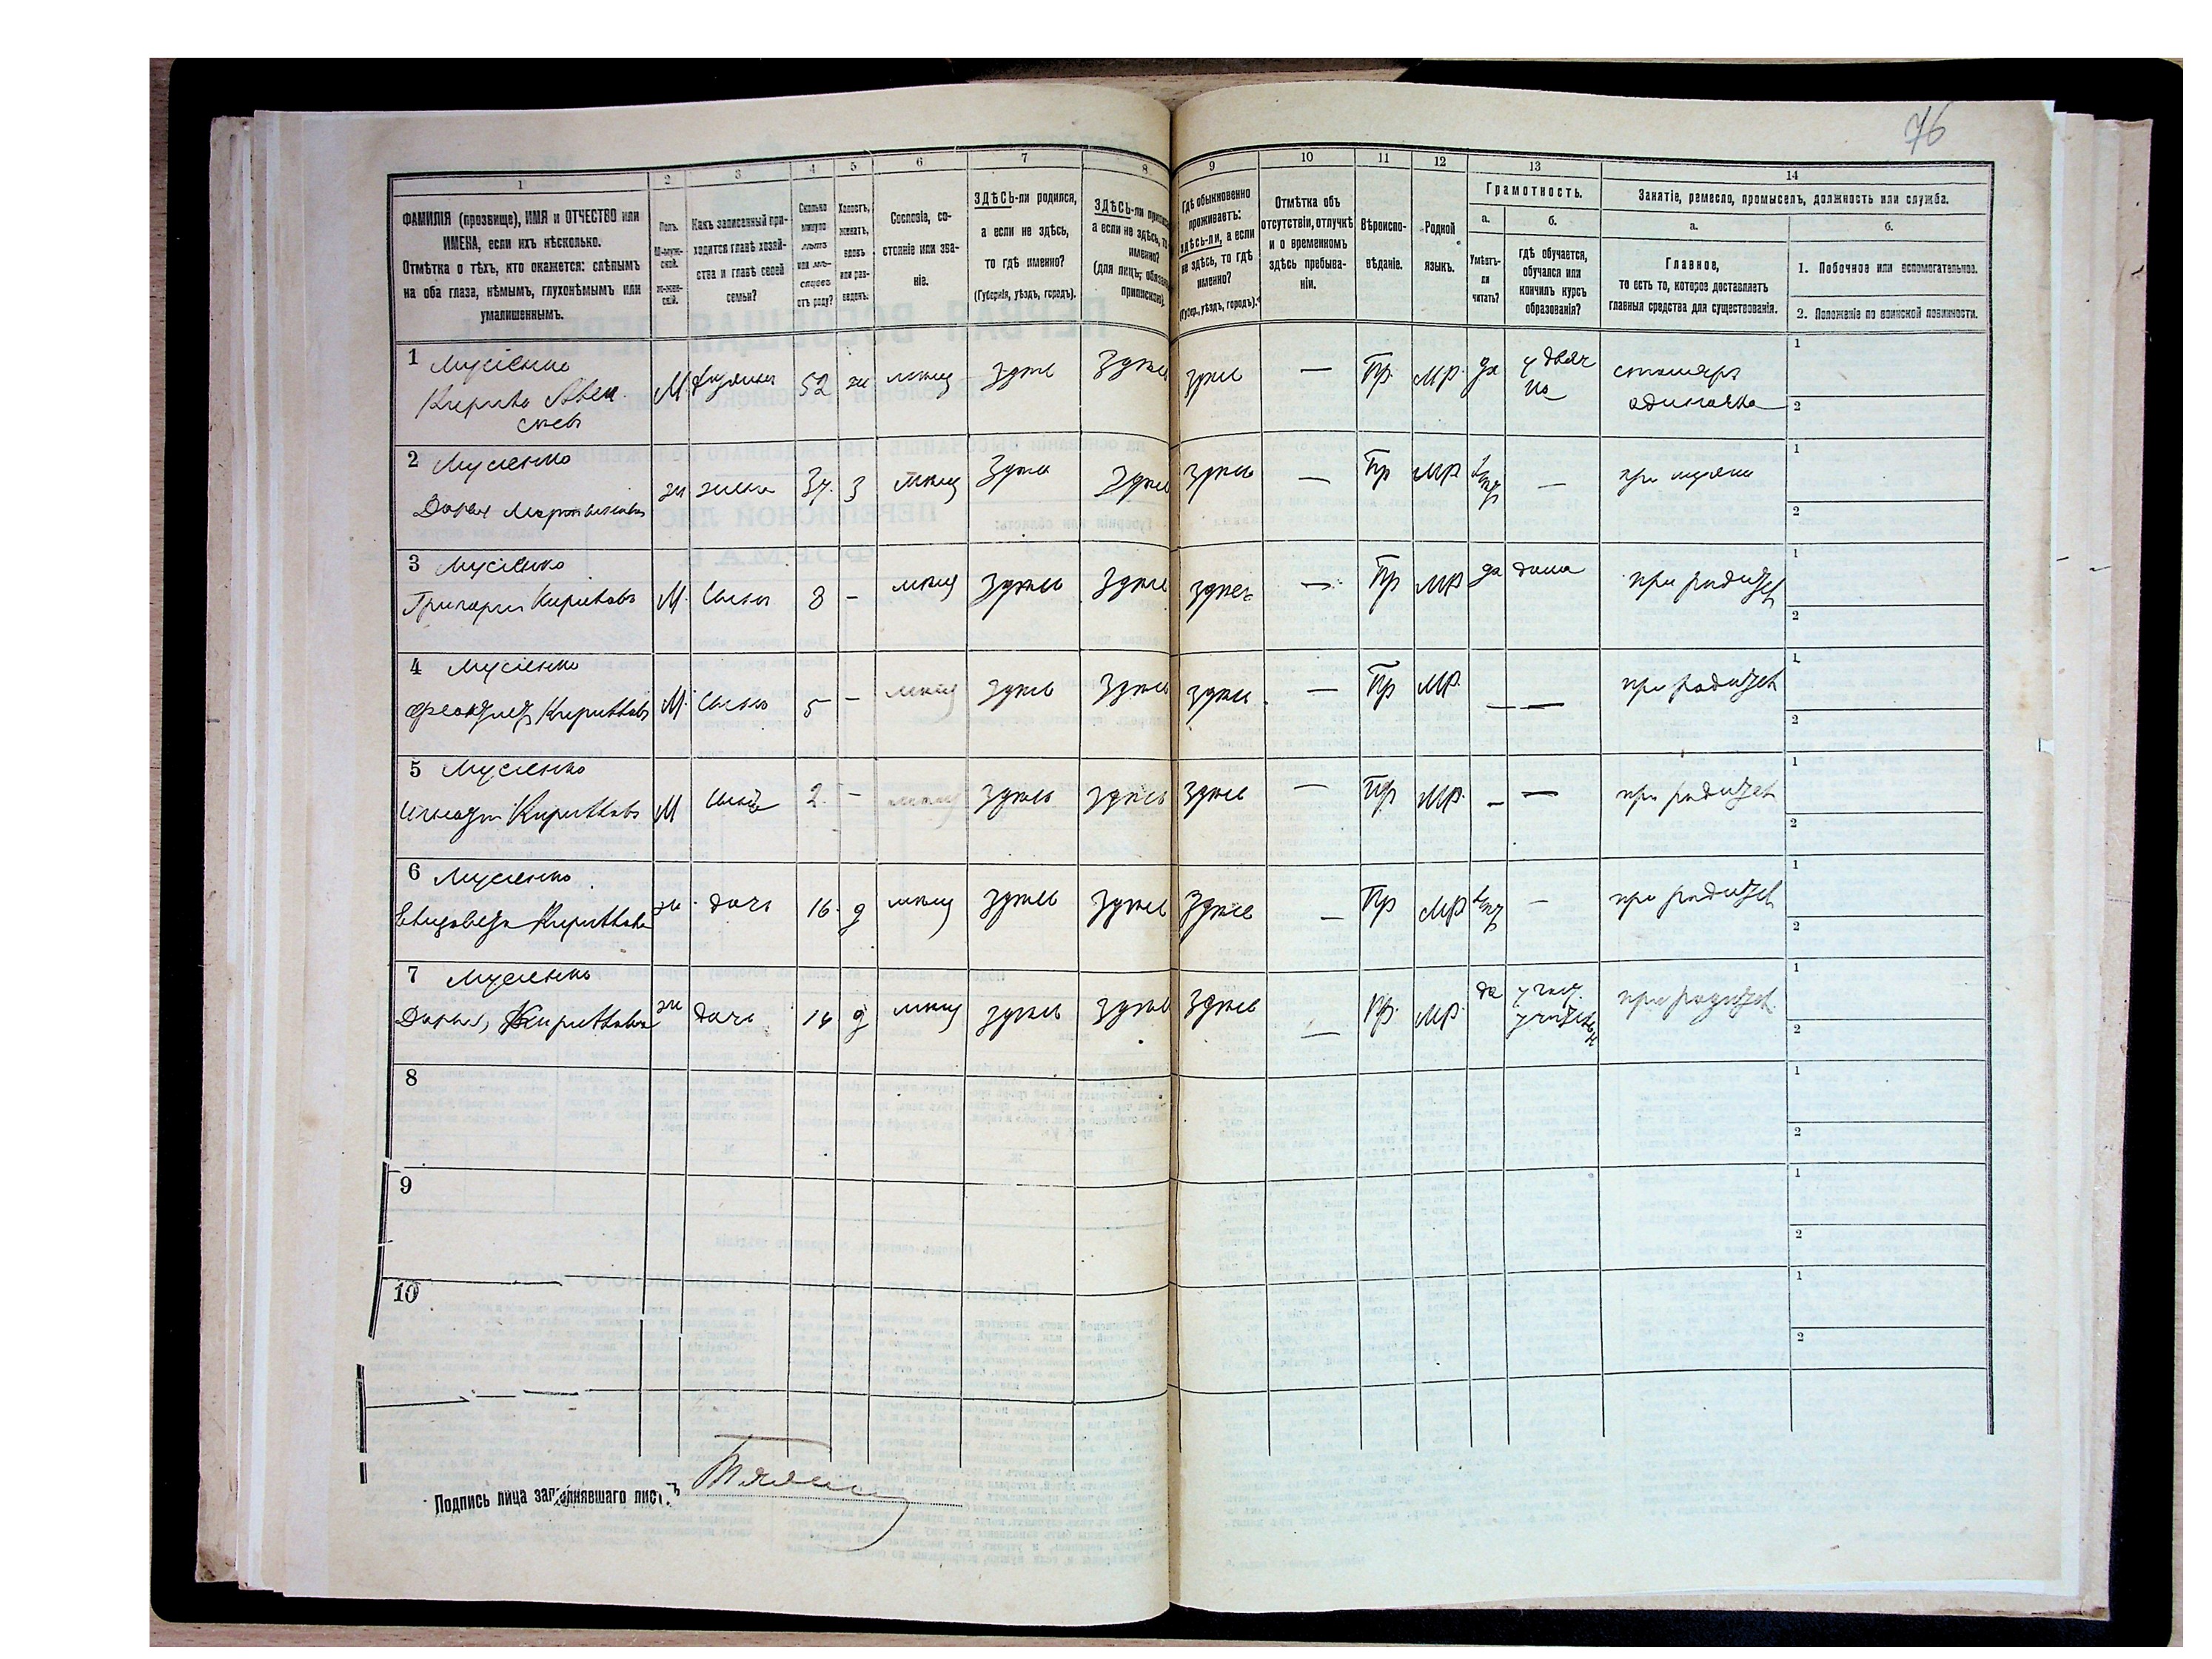 76
1
2
3
4
5
6
7
8
9
10
11
12
13
14
ФАМИЛІЯ (прозвище), ИМЯ и ОТЧЕСТВО или
ИМЕНА, если ихъ нѣсколько.
Отмѣтка о тѣхъ, кто окажется: слѣпымъ
на оба глаза, нѣмымъ, глухонѣмымъ или
умалишеннымъ.
Полъ.
М-муж-
ской.
ж-жен-
скій.
Какъ записанный при-
ходится главѣ хозяй-
ства и главѣ своей
семьи?
Сколько
минуло
лѣтъ
или мѣ-
сяцевъ
отъ роду?
Холостъ,
женатъ,
вдовъ
или раз-
веденъ.
Сословіе, со-
стояніе или зва-
ніе.
ЗДѢСЬ-ли родился,
а если не здѣсь,
то гдѣ именно?
(Губернія, уѣздъ, городъ).
ЗДѢСЬ-ли
а если не здѣсь, то
именно?
(для лицъ,
припискою).
Гдѣ обыкновенно
проживаетъ:
здѣсь-ли, а если
не здѣсь, то гдѣ
именно?
(Губер., уѣздъ, городъ).
Отмѣтка объ
отсутствіи, отлучкѣ
и о временномъ
здѣсь пребыва-
ніи.
Вѣроиспо-
вѣданіе.
Родной
языкъ.
Грамотность.
а.
б.
Умѣетъ-
ли
читать?
гдѣ обучается,
обучался или
кончилъ курсъ
образованія?
Занятіе, ремесло, промыселъ, должность или служба.
а.
б.
Главное,
то есть то, которое доставляетъ
главныя средства для существованія.
1. Побочное или вспомогательное.
2. Положеніе по воинской повинности.
1 Мусіенко
Кирилъ Алек
сѣевъ
М
52
ж
мѣщ
здѣсь
здѣсь
здѣсь
—
Пр.
МР.
да
у дьяч
ка
столяръ
одиночка
1
2
2 Мусіенко
Дарья Мартыновна
ж
жена
37.
з
мѣщ
здѣсь
здѣсь
здѣсь
—
Пр
МР
нѣтъ
—
при мужѣ
1
2
3 Мусіенко
Григорій Кириловъ
М.
Сынъ
8
-
мѣщ
здѣсь
здѣсь
здѣсь
—
Пр
МР
да
дома
при родител
1
2
4 Мусіенко
Кириловъ
М.
Сынъ
5
-
мѣщ
здѣсь
здѣсь
здѣсь
—
Пр
МР.
—
—
при родител
1
2
5 Мусіенко
Игнатій Кириловъ
М
Сынъ
2.
-
мѣщ
здѣсь
здѣсь
здѣсь
—
Пр
МР.
—
—
при родител
1
2
6 Мусіенко
Елизавета Кирилова
ж.
дочь
16.
д
мѣщ
здѣсь
здѣсь
здѣсь
—
Пр
МР
нѣтъ
—
при родител
1
2
7 Мусіенко
Дарья, Кирилова
ж
дочь
14
д
мѣщ
здѣсь
здѣсь
здѣсь
—
Пр.
МР.
да
при родител.
1
2
8
1
2
9
1
2
10
1
2
Подпись лица заполнявшаго листъ